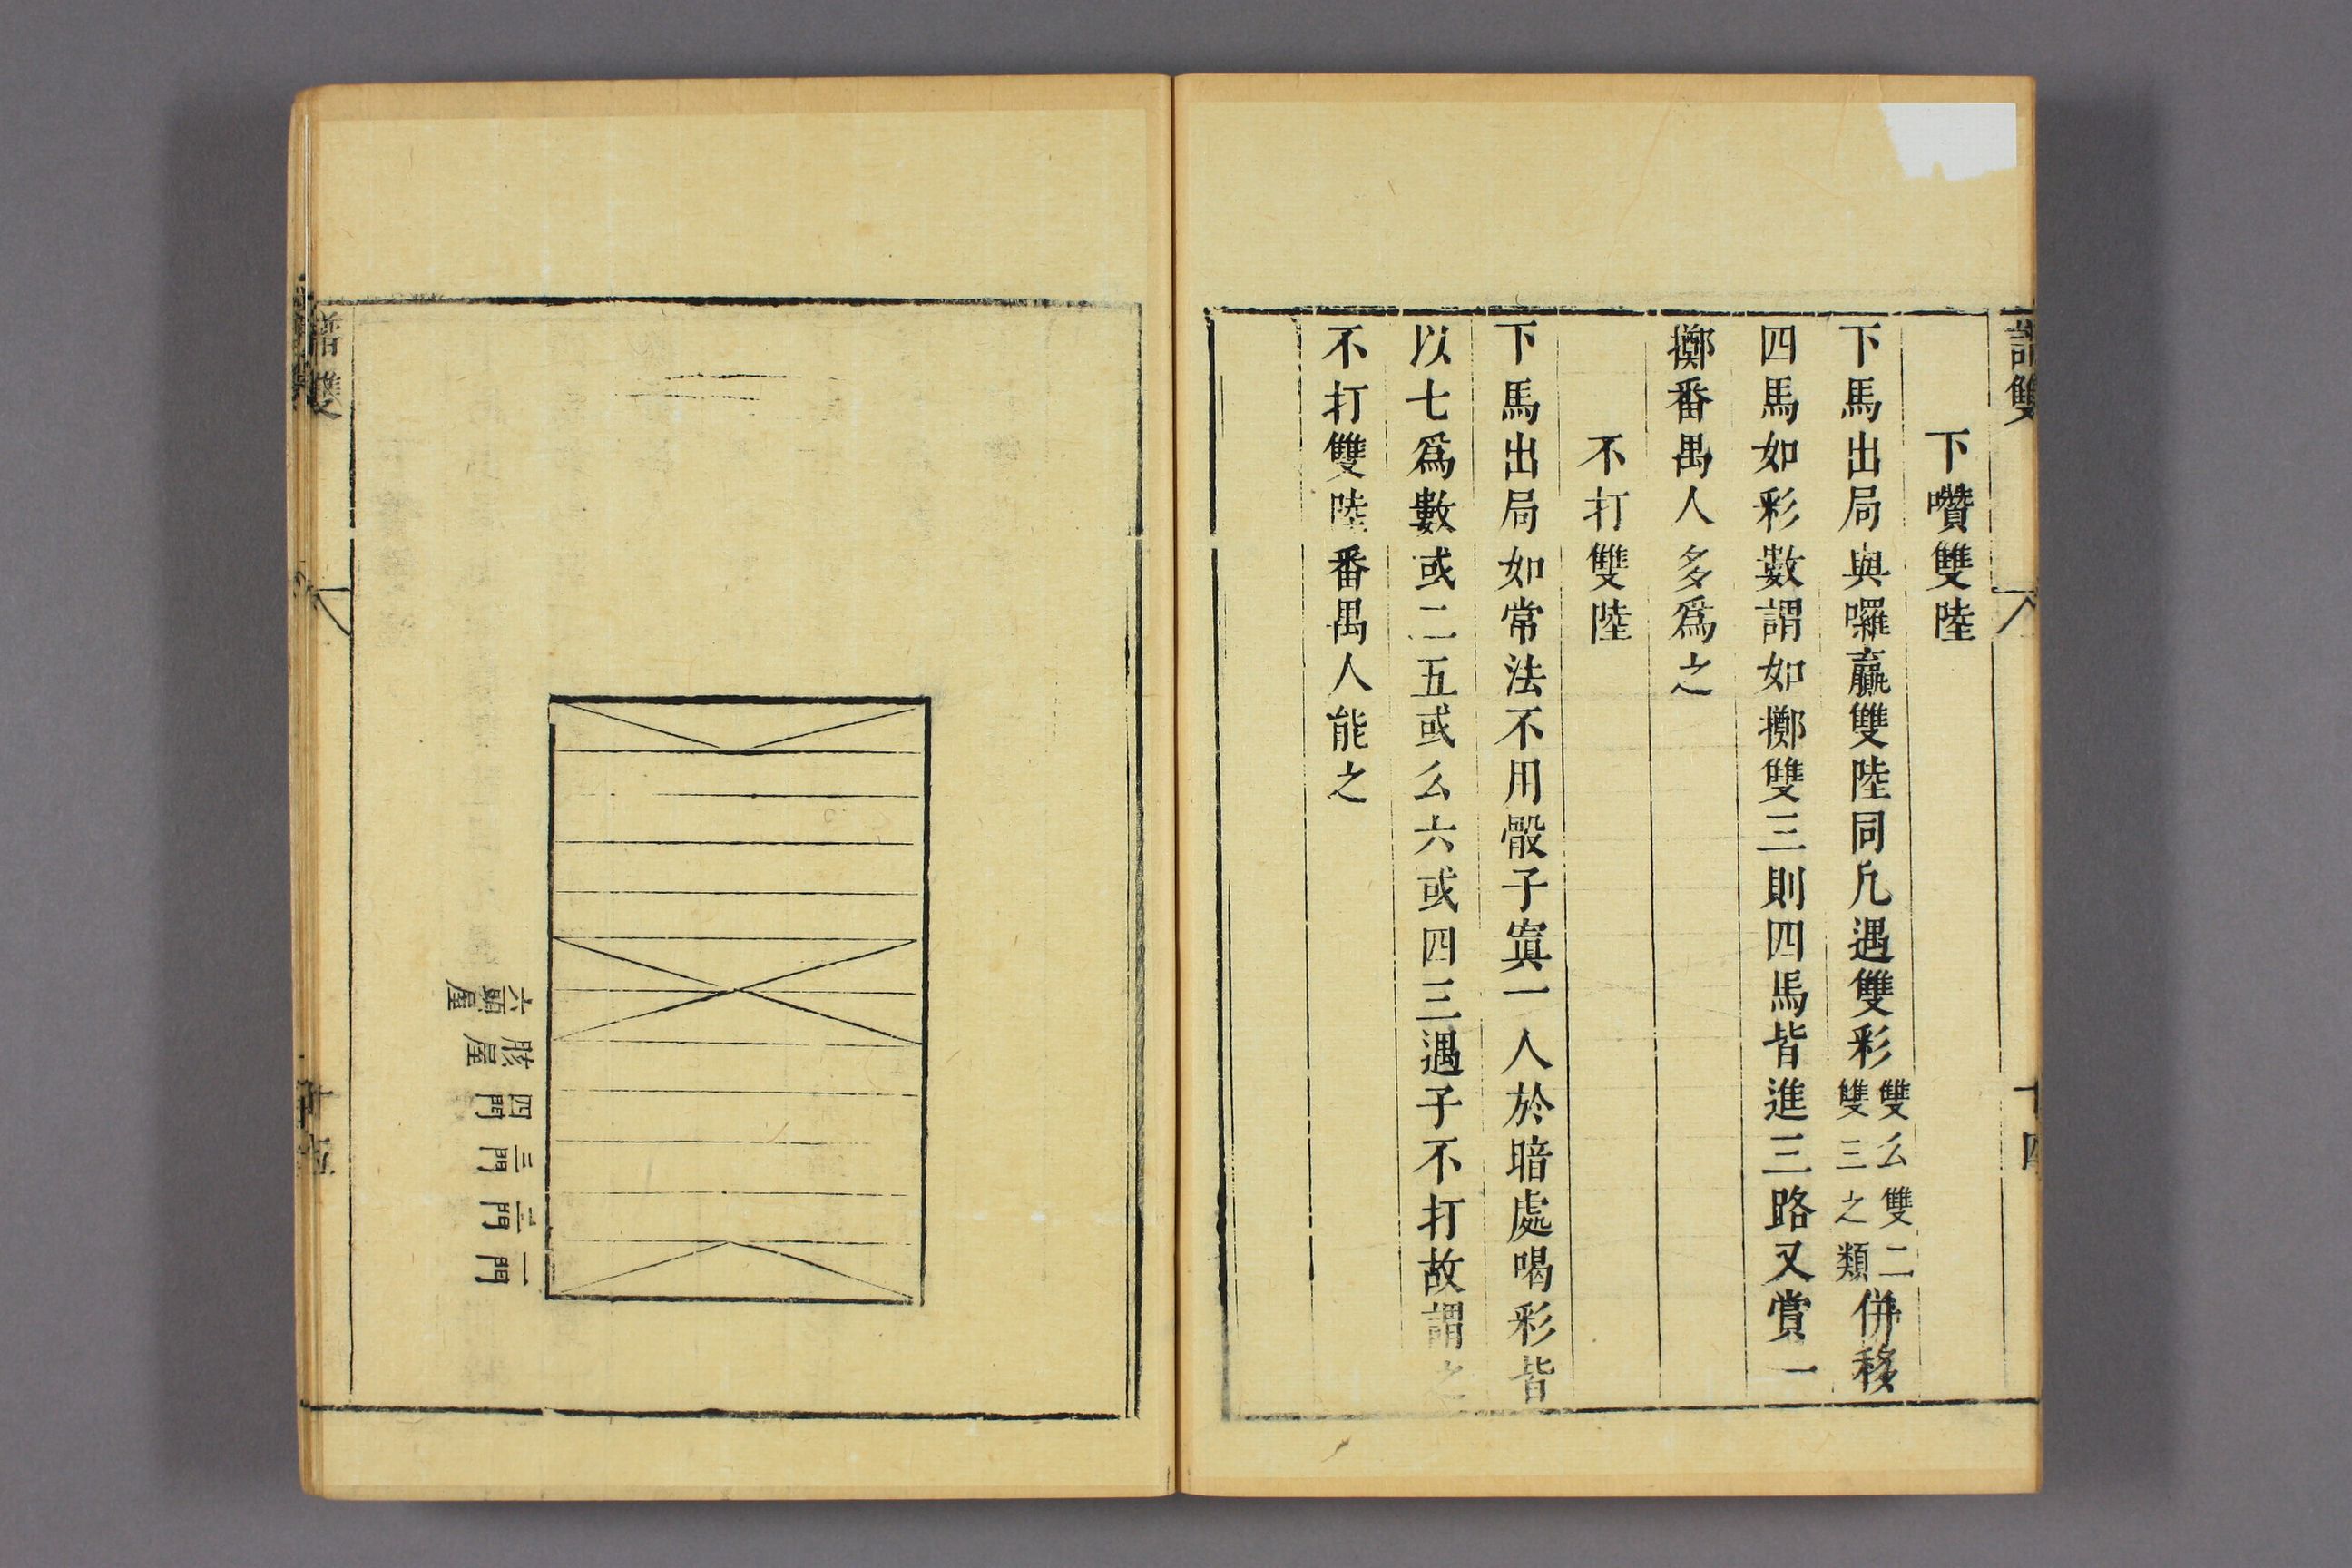 譜雙
十四
下囋雙陸
下馬出局與囉贏雙陸同凡遇雙彩雙么雙二雙三之類併移
四馬如彩數謂如擲雙三則四馬皆進三路又賞一
擲番禺人多爲之
不打雙陸
下馬出局如常法不用骰子寘一人於暗處喝彩皆
以七爲數或二五或么六或四三遇子不打故謂之
不打雙陸番禺人能之
一門
二門
三門
四門
屋
六
屋
譜雙
十五